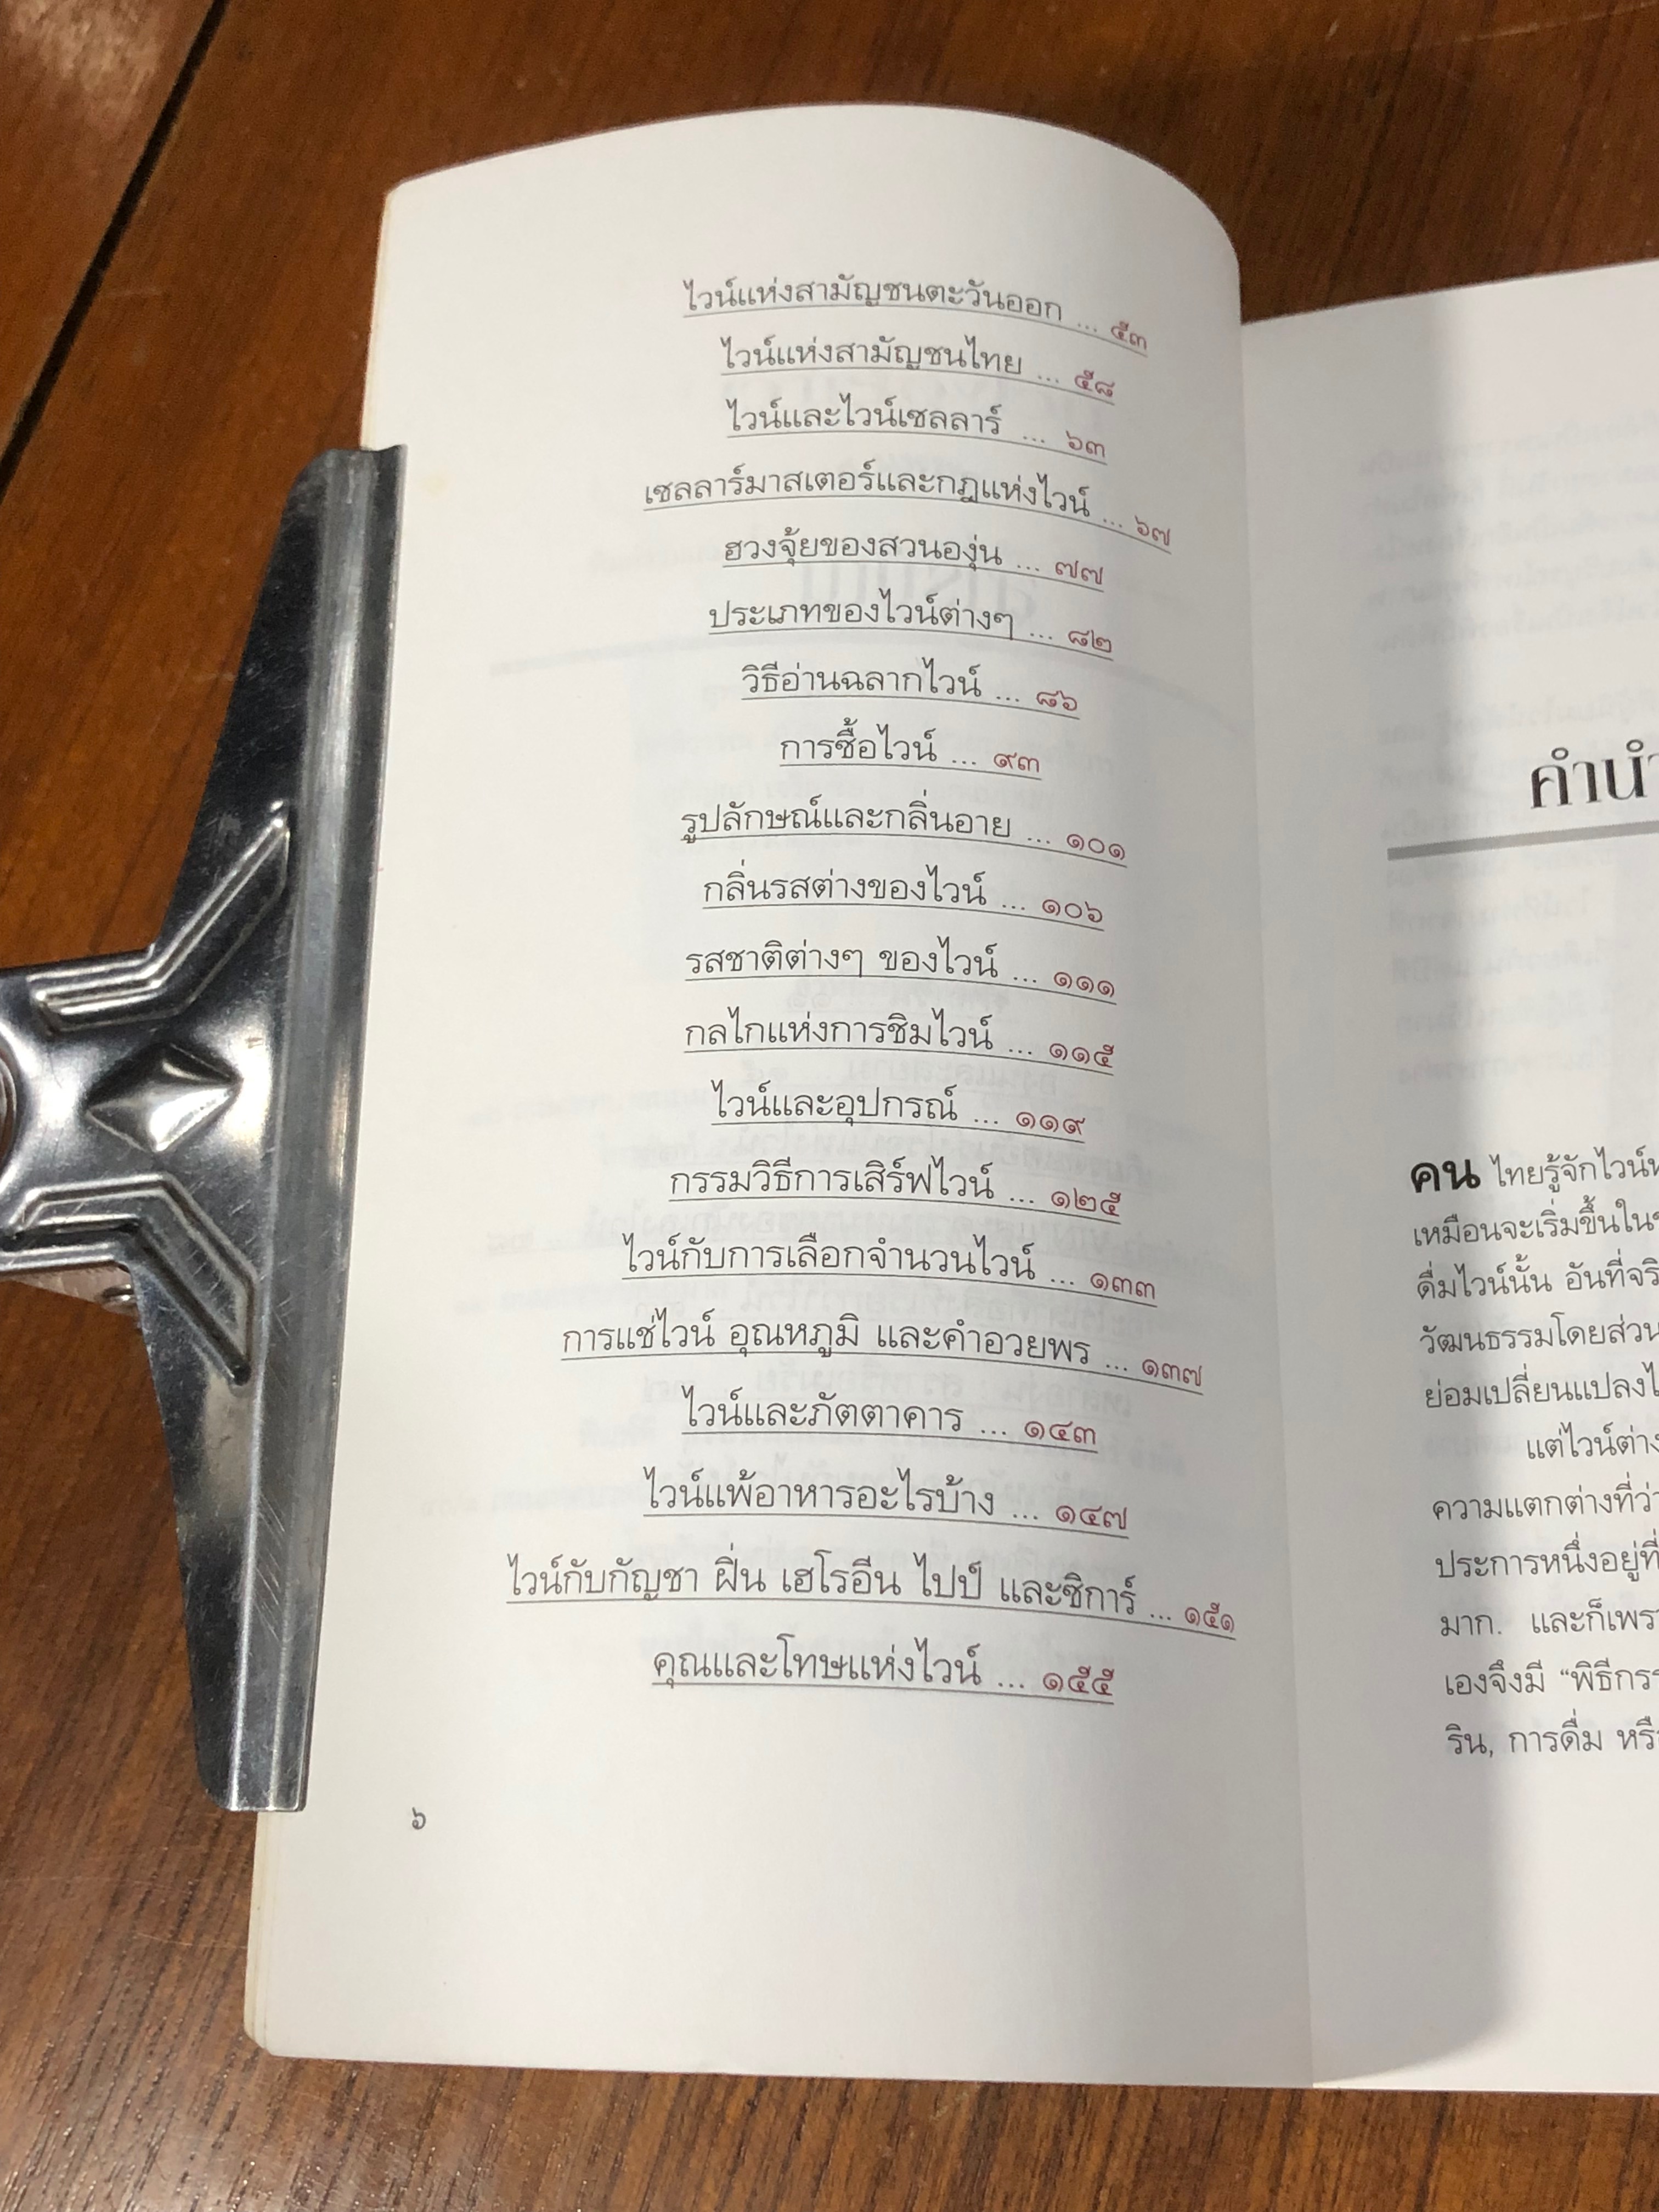 ไวน์แห่งสามัญชนตะวันออก ... ๕๓
ไวน์แห่งสามัญชนไทย ... ๕๘
ไวน์และไวน์เซลลาร์ ... ๖๓
เซลลาร์มาสเตอร์และกฎแห่งไวน์ ... ๖๗
ฮวงจุ้ยของสวนองุ่น ... ๗๗
ประเภทของไวน์ต่างๆ ... ๘๒
วิธีอ่านฉลากไวน์ ... ๘๖
การซื้อไวน์ ... ๙๓
รูปลักษณ์และกลิ่นอาย ... ๑๐๑
กลิ่นรสต่างของไวน์ ... ๑๐๖
รสชาติต่างๆ ของไวน์ ... ๑๑๑
กลไกแห่งการชิมไวน์ ... ๑๑๕
ไวน์และอุปกรณ์ ... ๑๑๙
กรรมวิธีการเสิร์ฟไวน์ ... ๑๒๕
ไวน์กับการเลือกจำนวนไวน์ ... ๑๓๓
การแช่ไวน์ อุณหภูมิ และคำอวยพร ... ๑๓๗
ไวน์และภัตตาคาร ... ๑๔๓
ไวน์แพ้อาหารอะไรบ้าง ... ๑๔๗
ไวน์กับกัญชา ฝิ่น เฮโรอีน ไปป์ และซิการ์ ... ๑๕๑
คุณและโทษแห่งไวน์ ... ๑๕๕
๖
คำนำ
คน ไทยรู้จักไวน์
เหมือนจะเริ่มขึ้นใน
ดื่มไวน์นั้น อันที่จริ
วัฒนธรรมโดยส่วน
ย่อมเปลี่ยนแปลงไ
แต่ไวน์ต่าง
ความแตกต่างที่ว่า
ประการหนึ่งอยู่ที่
มาก. และก็เพรา
เองจึงมี “พิธีกรร
ริน, การดื่ม หรื